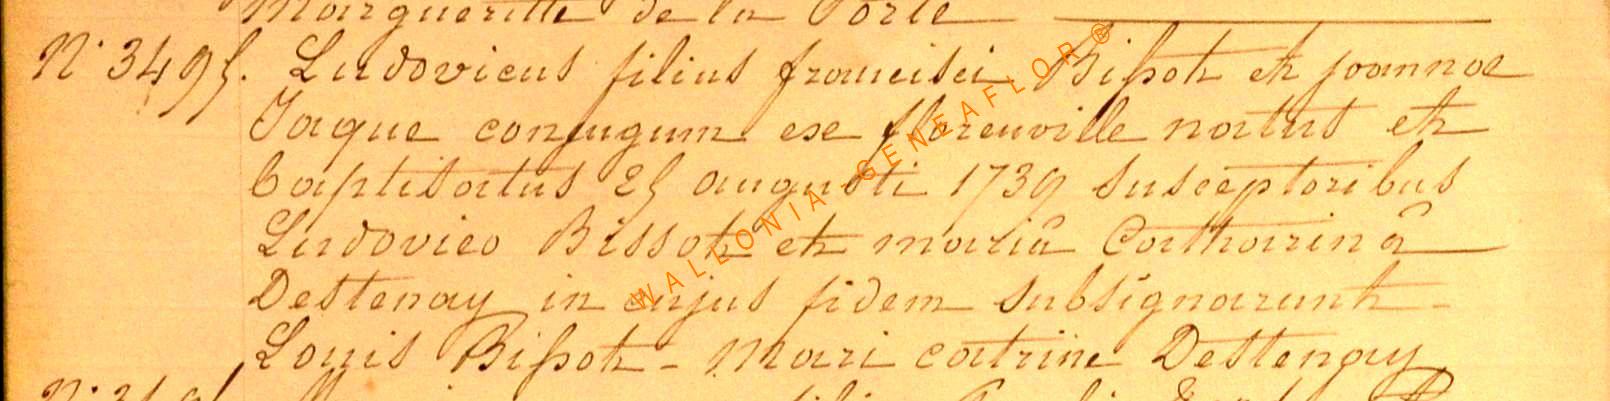 Margueritte de la Porte
N° 3495. Ludovicus filius francisci Bißot et joannae
Jaque conjugum exe florenville natus et
baptisatus 25 augusti 1739 susceptoribus
Ludovico Bissot et mariâ Catharinâ
Destenay in cujus fidem subsignarunt
Louis Bißot - Mari catrine Destenay
WALLONIA GENEAFLOR ®